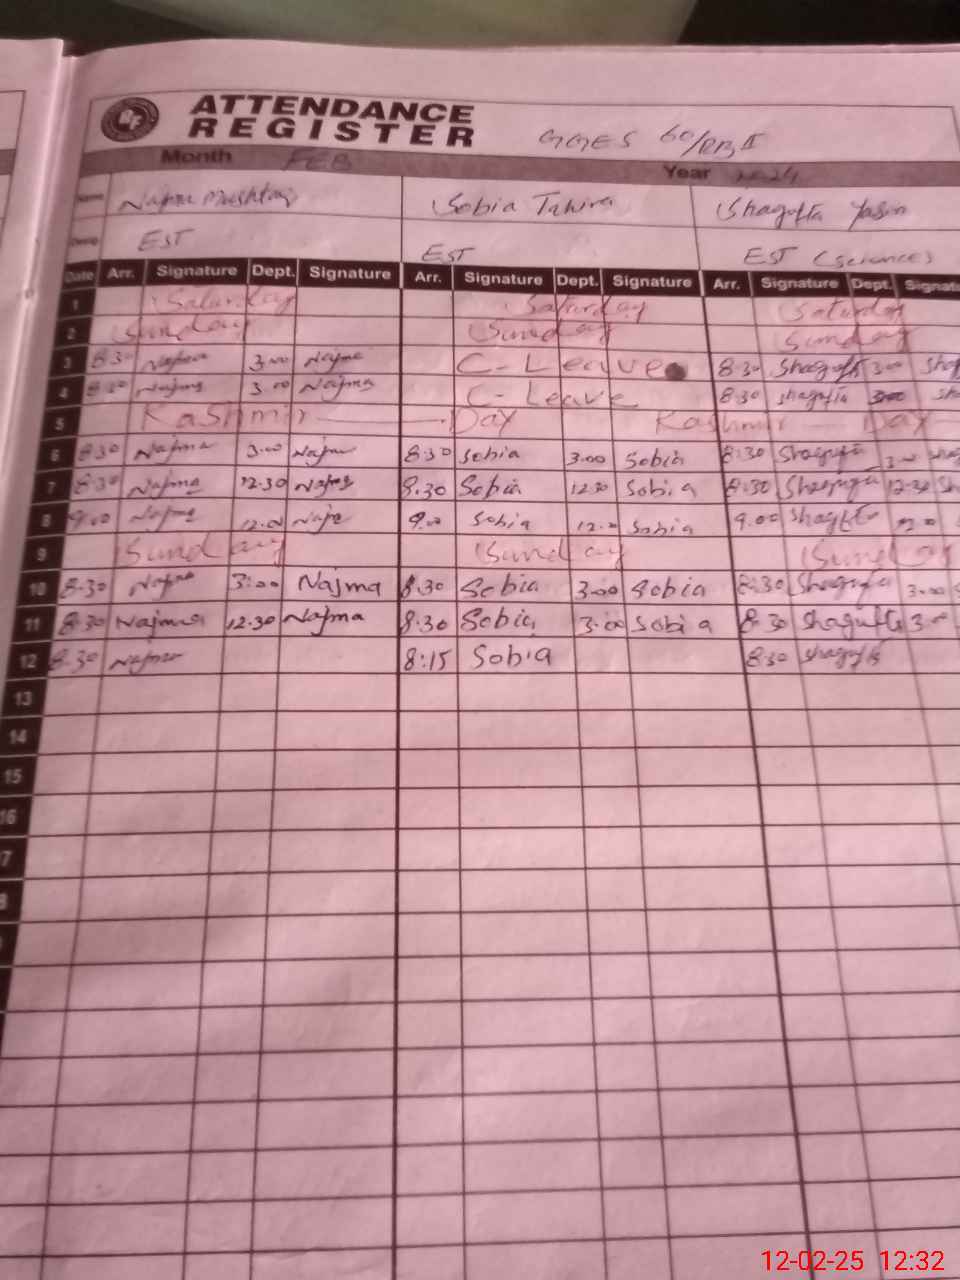 ATTENDANCE
REGISTER GGES 60/RB I
Month FEB Year 2024
Name Najma Mushtaq Sobia Tahira Shagufta Yasin
Desig EST EST EST (Science)
Date Arr. Signature Dept. Signature Arr. Signature Dept. Signature Arr. Signature Dept. Signat
1 Saturday Saturday Saturday
2 Sunday Sunday Sunday
3 8:30 Najma 3:00 Najma C-Leave 8:30 Shagufta 3:00
4 8:30 Najma 3:00 Najma C-Leave 8:30 Shagufta 3:00
5 Kashmir Day Kashmir Day
6 8:30 Najma 3:00 Najma 8:30 Sobia 3.00 Sobia 8:30 Shagufta 3:00
7 8:30 Najma 12.30 Najma 8.30 Sobia 12.30 Sobia 8:30 Shagufta 12:30 Sh
8 9.00 Najma 12.00 9.00 Sobia 12.00 Sobia 9.00 Shagufta 12.00
9 Sunday Sunday Sunday
10 8:30 Najma 3:00 Najma 8:30 Sobia 3:00 Sobia 8:30 Shagufta 3:00
11 8:30 Najma 12.30 Najma 8:30 Sobia 3:00 Sobia 8:30 Shagufta 3:00
12 8:30 Najma 8:15 Sobia 8:30 Shagufta
13
14
15
16
7
8
12-02-25 12:32